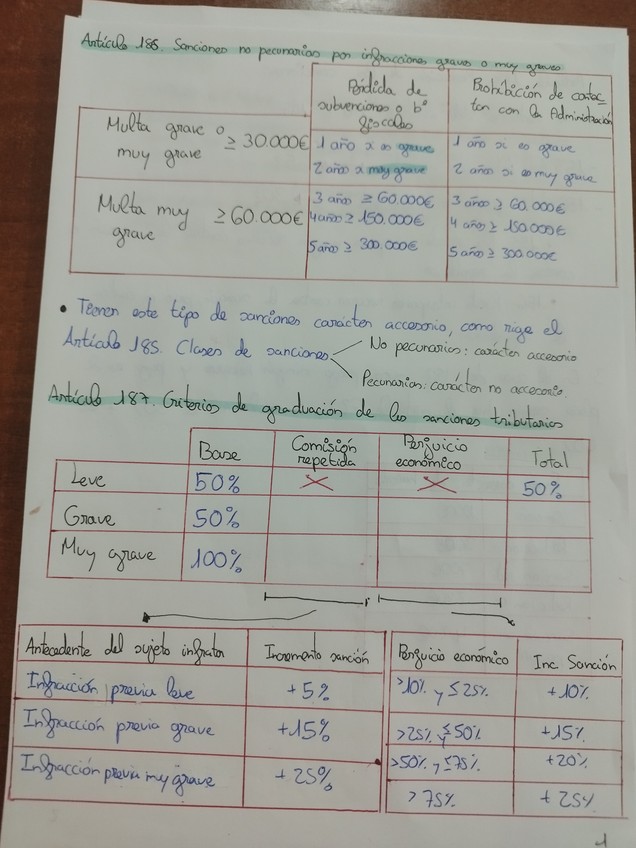 Artículo 186. Sanciones no pecunarias por infracciones graves o muy graves
Pérdida de subvenciones o bº fiscales
Prohibición de contac_
tar con la Administración
Multa grave o muy grave ≥ 30.000€
1 año x es grave
1 año si es grave
2 años x muy grave
2 años si es muy grave
Multa muy grave ≥ 60.000€
3 años ≥ 60.000€
3 años ≥ 60.000€
4 años ≥ 150.000€
4 años ≥ 150.000€
5 años ≥ 300.000€
5 años ≥ 300.000€
• Tienen este tipo de sanciones carácter accesorio, como rige el
Artículo 185. Clases de sanciones
No pecunarias: carácter accesorio
Pecunarias: carácter no accesorio
Artículo 187. Criterios de graduación de las sanciones tributarias
Base
Comisión repetida
Perjuicio económico
Total
Leve 50% X X 50%
Grave 50%
Muy grave 100%
Antecedente del sujeto infrator
Incremento sanción
Perjuicio económico
Inc. Sanción
Infracción previa leve +5%
>10% y ≤ 25% +10%
Infracción previa grave +15%
>25% y ≤ 50% +15%
Infracción previa muy grave +25%
>50% y ≤ 75% +20%
> 75% + 25%
1